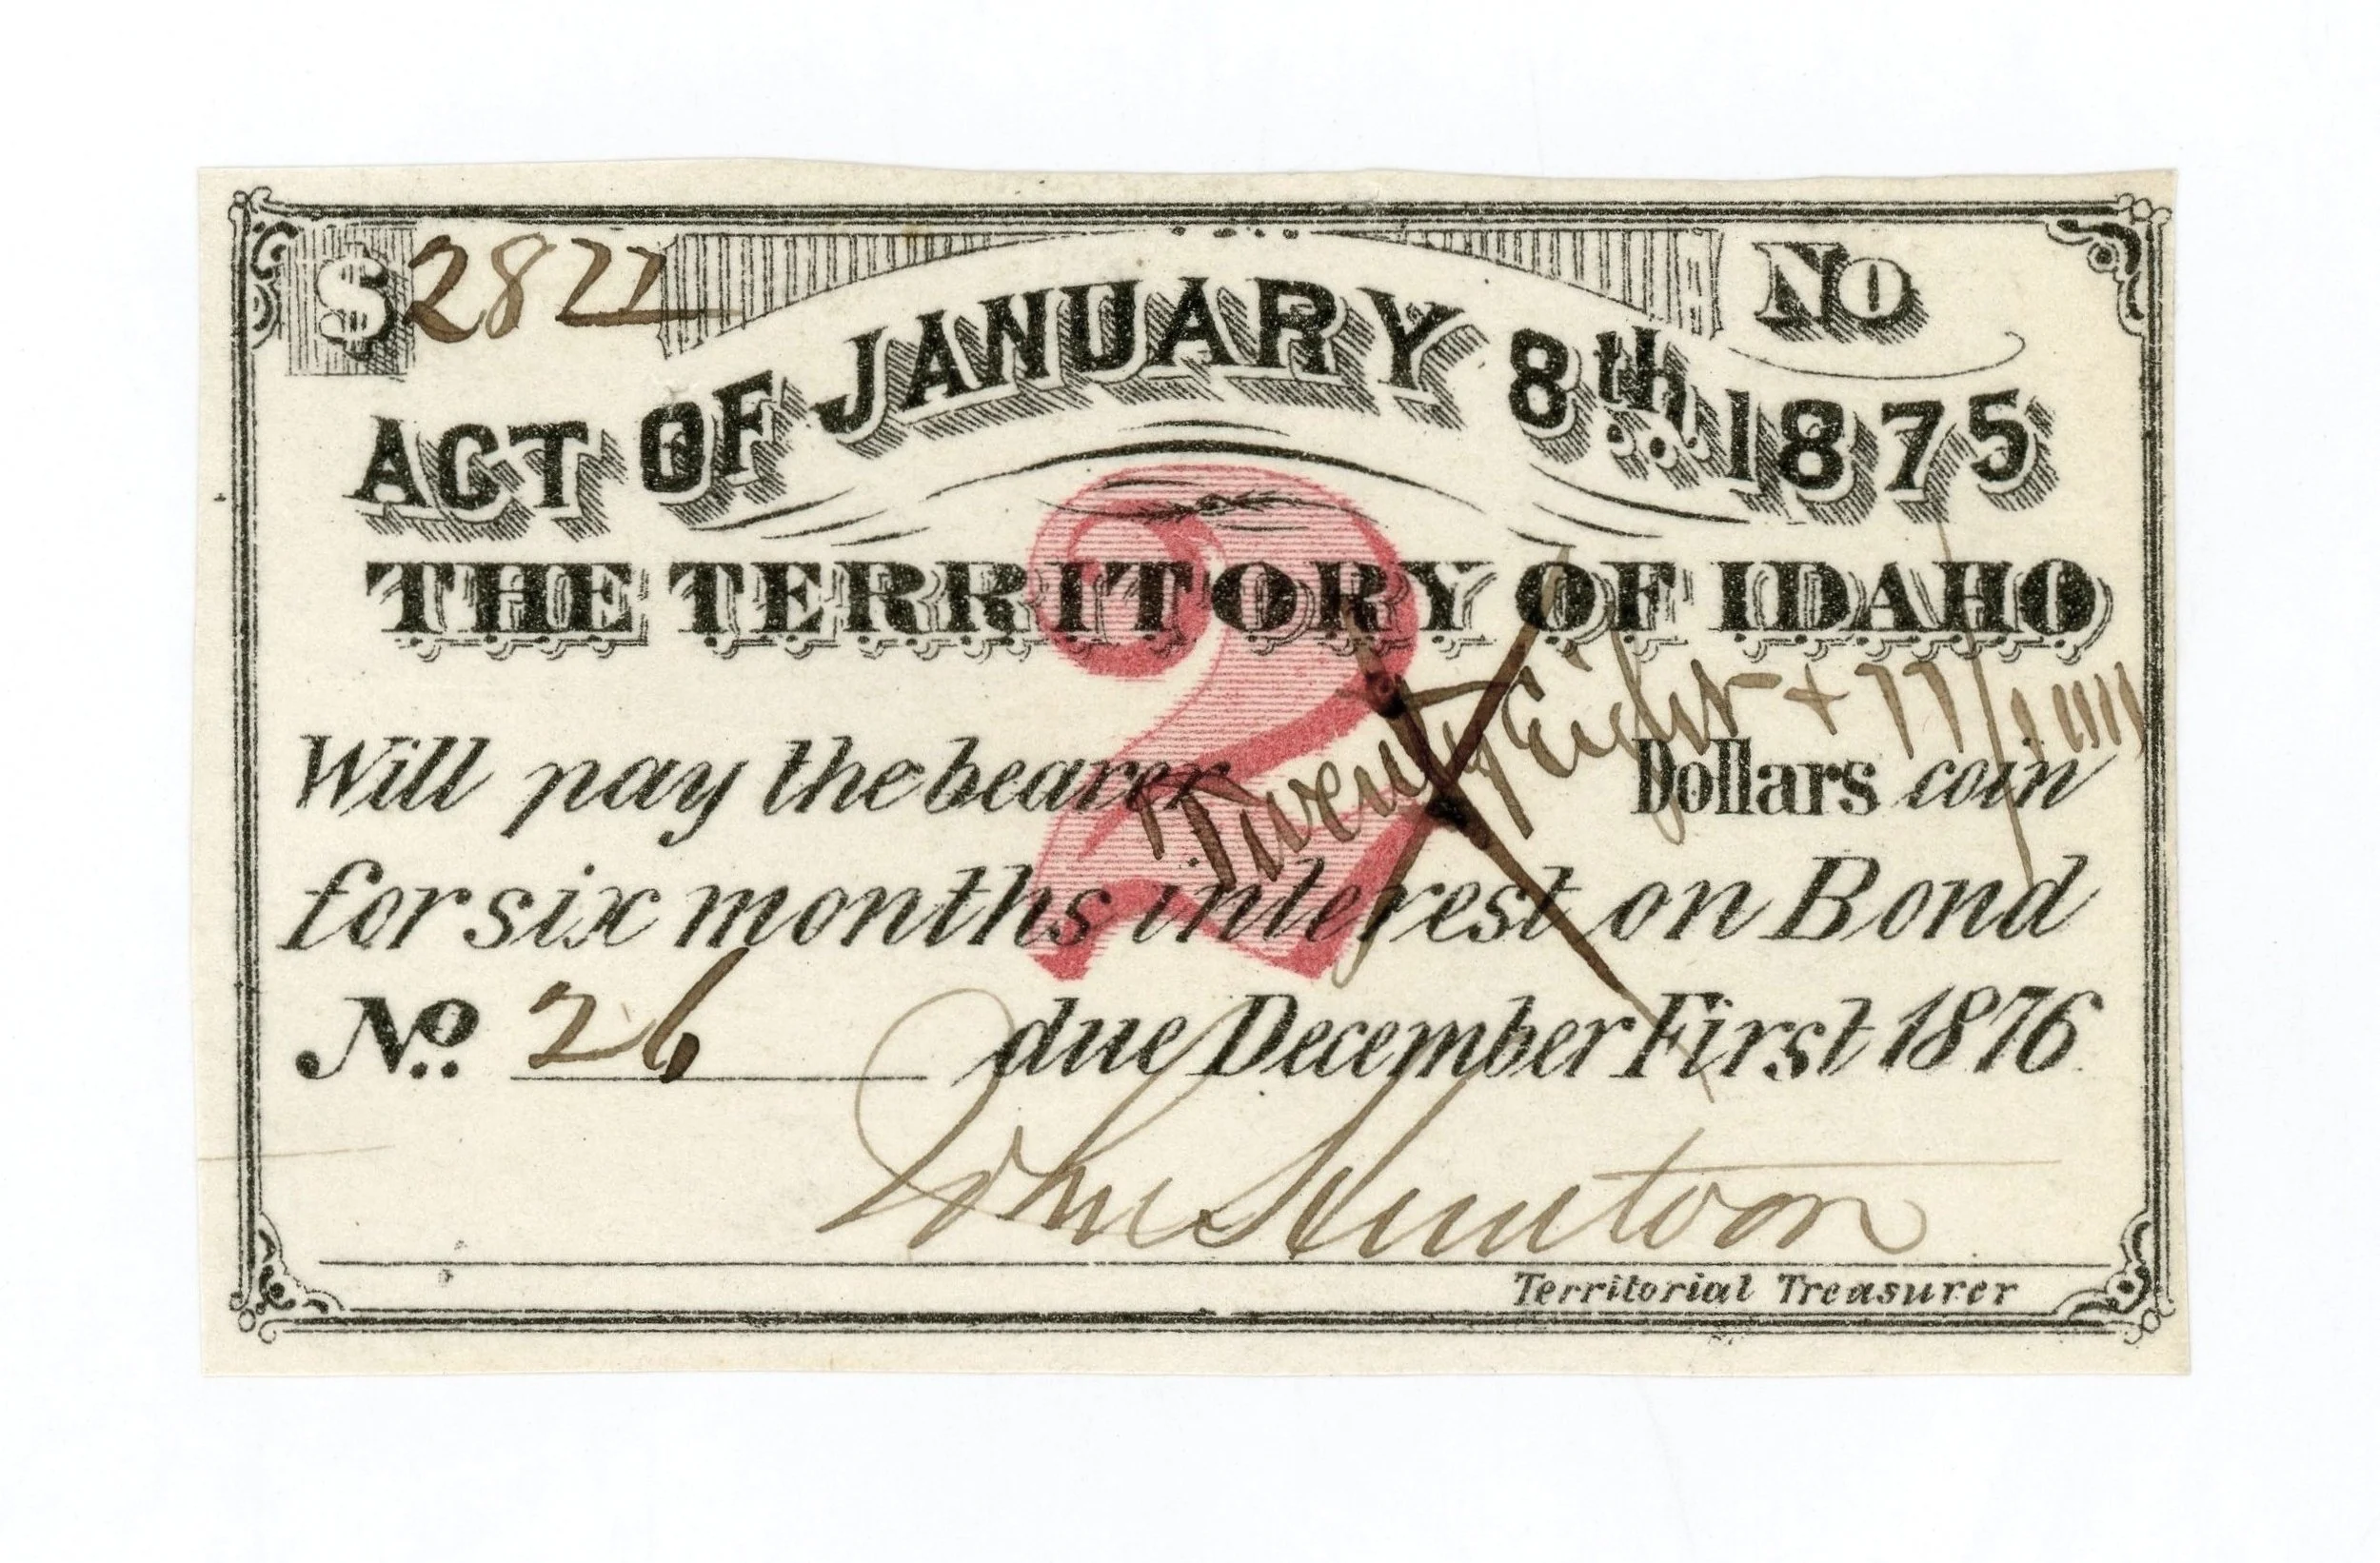 $ 28 77 No
ACT OF JANUARY 8th 1875
THE TERRITORY OF IDAHO
2
Will pay the bearer Twenty Eight + 77/ Dollars coin
for six months interest on Bond
No. 26 due December First 1876
John Huntoon
Territorial Treasurer